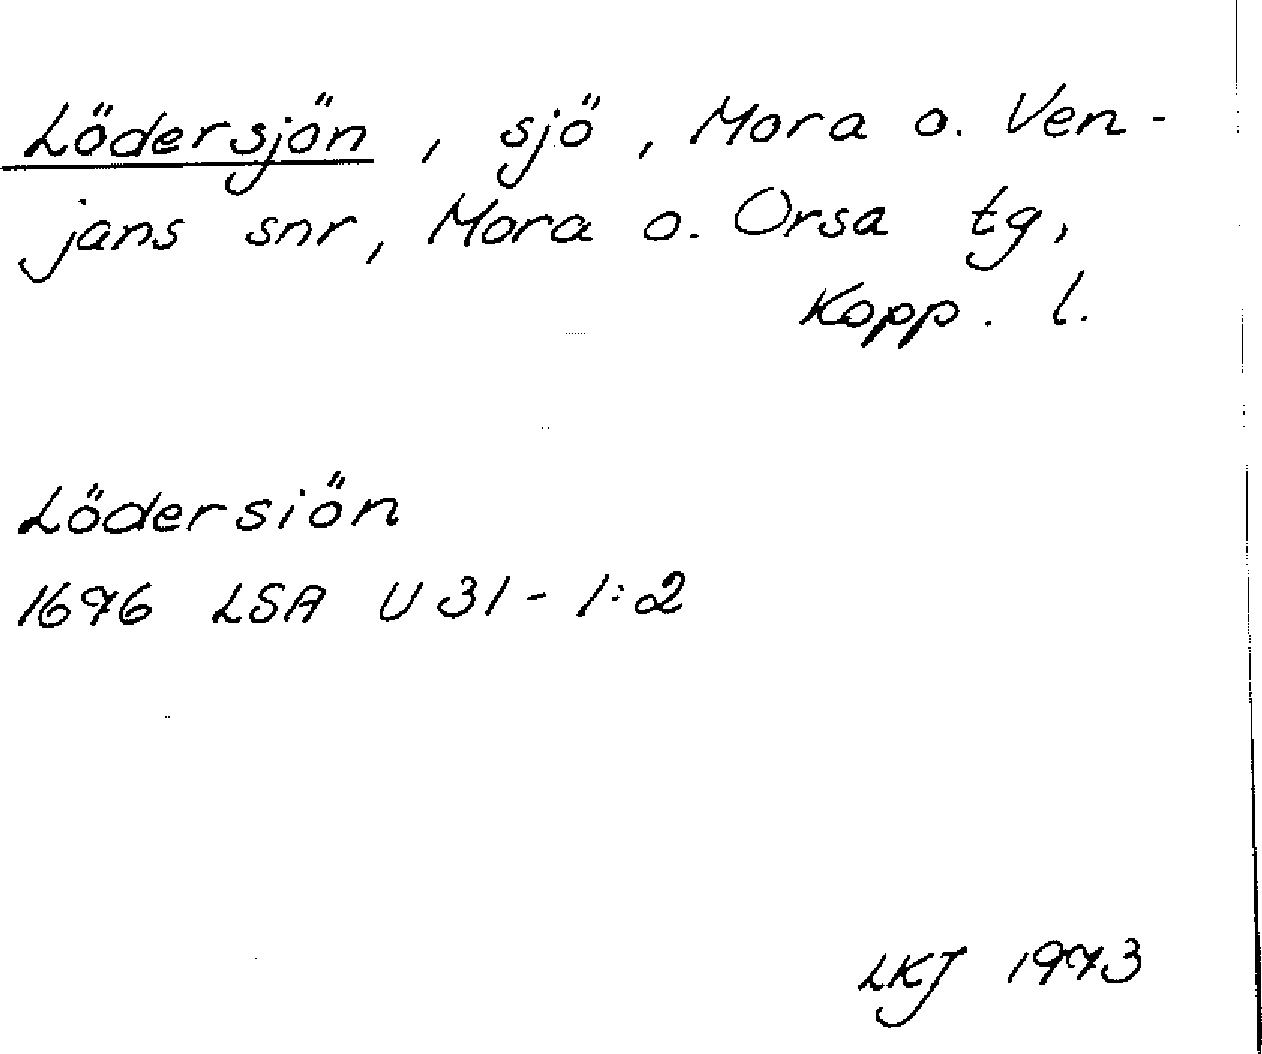 Lödersjön, sjö, Mora o. Ven-
jans snr, Mora o. Orsa tg,
Kopp. l.
Lödersiön
1676 LSA U 31 - 1:2
LKJ 1973